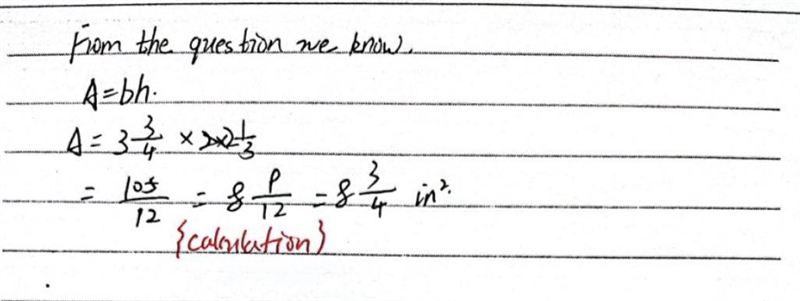 From the question we know.
A=bh.
A = 3 3/4 × 2 1/3
= 105/12 = 8 9/12 = 8 3/4 in².
{calculation}